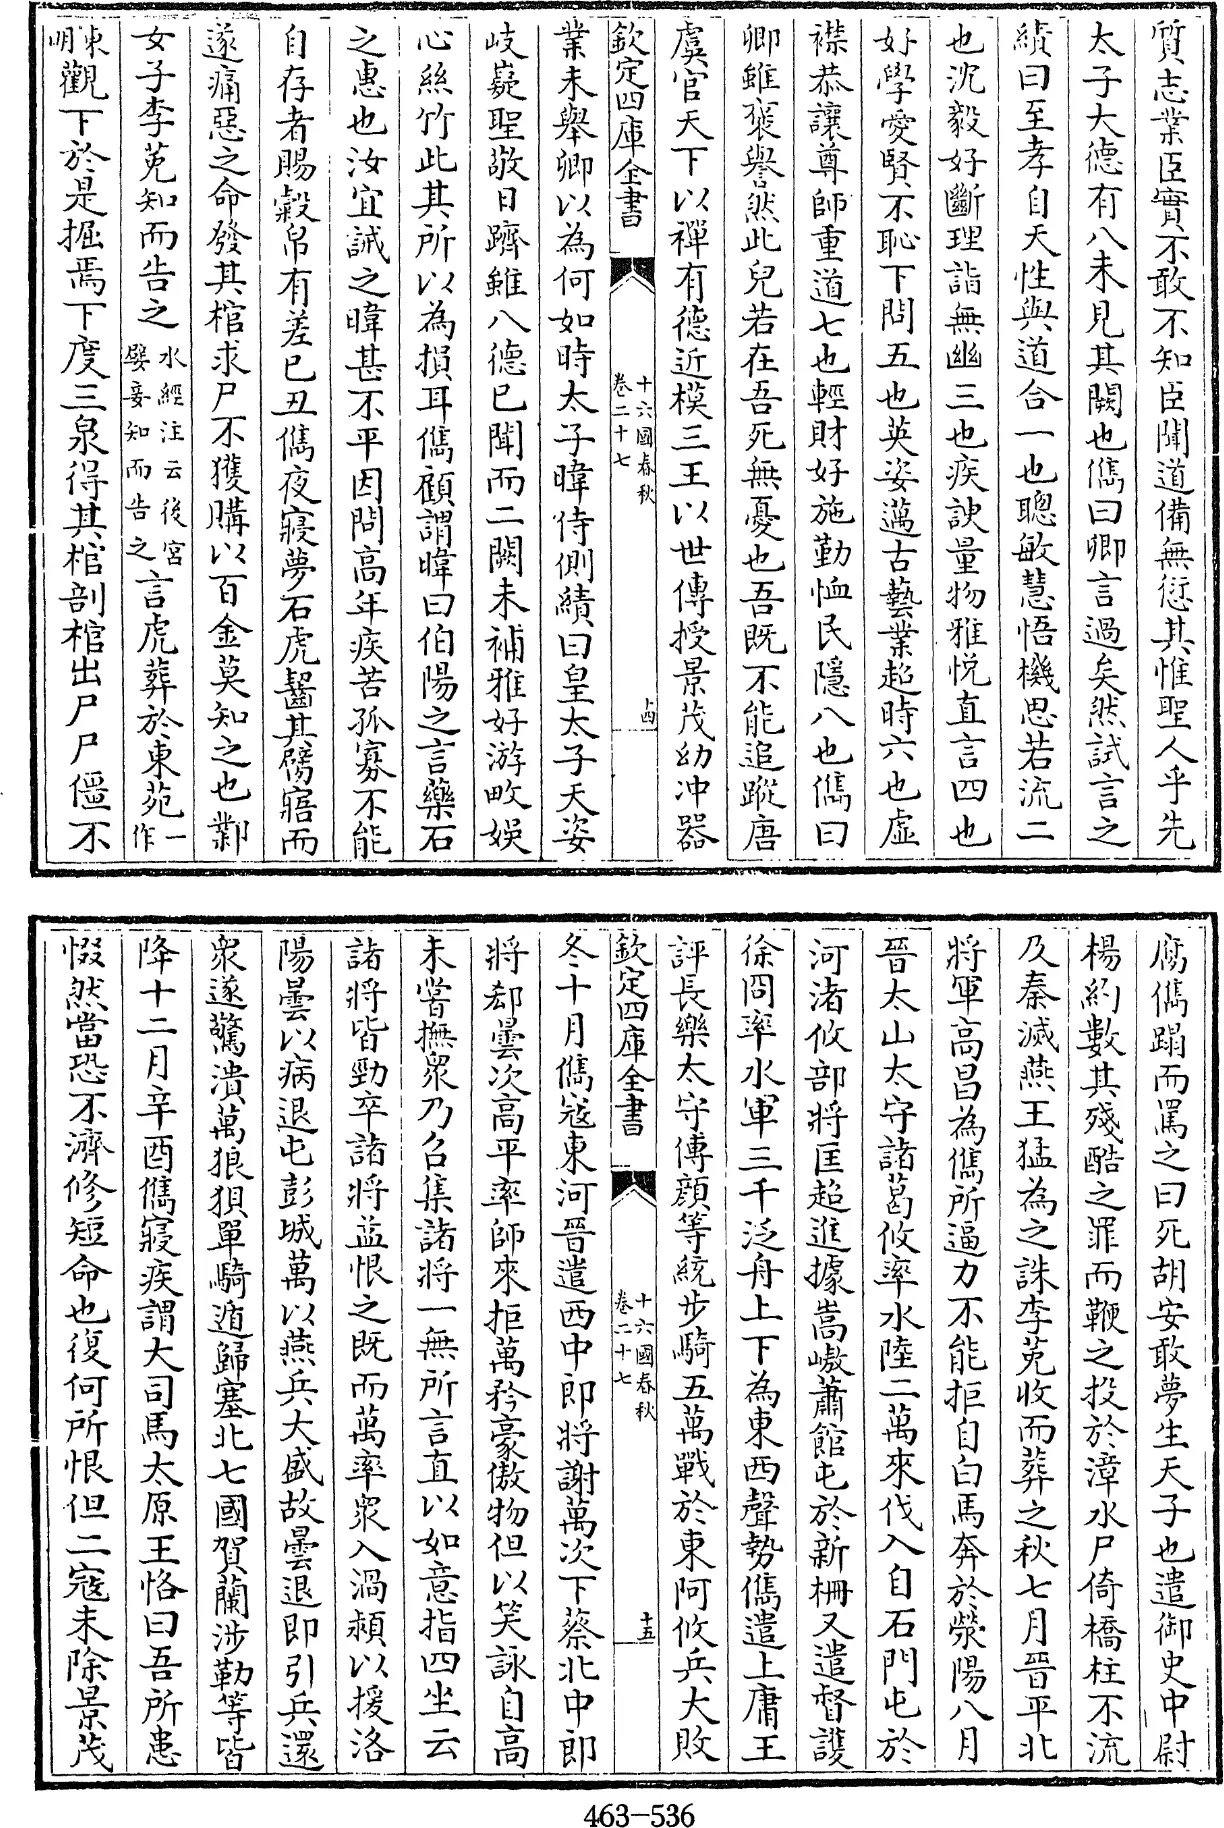 質志業臣實不敢不知臣聞道備無愆其惟聖人乎先
太子大德有八未見其闕也儁曰卿言過矣然試言之
績曰至孝自天性與道合一也聰敏慧悟機思若流二
也沈毅好斷理詣無幽三也疾諛量物雅悅直言四也
好學愛賢不恥下問五也英姿邁古藝業超時六也虛
襟恭讓尊師重道七也輕財好施勤恤民隱八也儁曰
卿雖褒譽然此兒若在吾死無憂也吾既不能追蹤唐
虞官天下以禪有德近模三王以世傳授景茂幼冲器
欽定四庫全書
十六國春秋
卷二十七
十四
業未舉卿以為何如時太子暐侍側績曰皇太子天姿
岐嶷聖敬日躋雖八德已聞而二闕未補雅好游畋娛
心絲竹此其所以為損耳儁顧謂暐曰伯陽之言藥石
之惠也汝宜誡之暐甚不平因問高年疾苦孤寡不能
自存者賜穀帛有差已丑儁夜寢夢石虎齧其臂寤而
遂痛惡之命發其棺求尸不獲購以百金莫知之也鄴
女子李菟知而告之水經注云後宮嬖妾知而告之言虎葬於東苑一作
東明觀下於是掘焉下度三泉得其棺剖棺出尸尸僵不
腐儁蹋而罵之曰死胡安敢夢生天子也遣御史中尉
楊約數其殘酷之罪而鞭之投於漳水尸倚橋柱不流
及秦滅燕王猛為之誅李菟收而葬之秋七月晉平北
將軍高昌為儁所逼力不能拒自白馬奔於滎陽八月
晉太山太守諸葛攸率水陸二萬來伐入自石門屯於
河渚攸部將匡超進據嵩嶅蕭館屯於新柵又遣督護
徐冏率水軍三千泛舟上下為東西聲勢儁遣上庸王
評長樂太守傅顏等統步騎五萬戰於東阿攸兵大敗
欽定四庫全書
十六國春秋
卷二十七
十五
冬十月儁寇東河晉遣西中郎將謝萬次下蔡北中郎
將郗曇次高平率師來拒萬矜豪傲物但以笑詠自高
未嘗撫衆乃召集諸將一無所言直以如意指四坐云
諸將皆勁卒諸將益恨之既而萬率衆入渦潁以援洛
陽曇以病退屯彭城萬以燕兵大盛故曇退即引兵還
衆遂驚潰萬狼狽單騎遁歸塞北七國賀蘭涉勒等皆
降十二月辛酉儁寢疾謂大司馬太原王恪曰吾所患
惙然當恐不濟修短命也復何所恨但二寇未除景茂
463-536